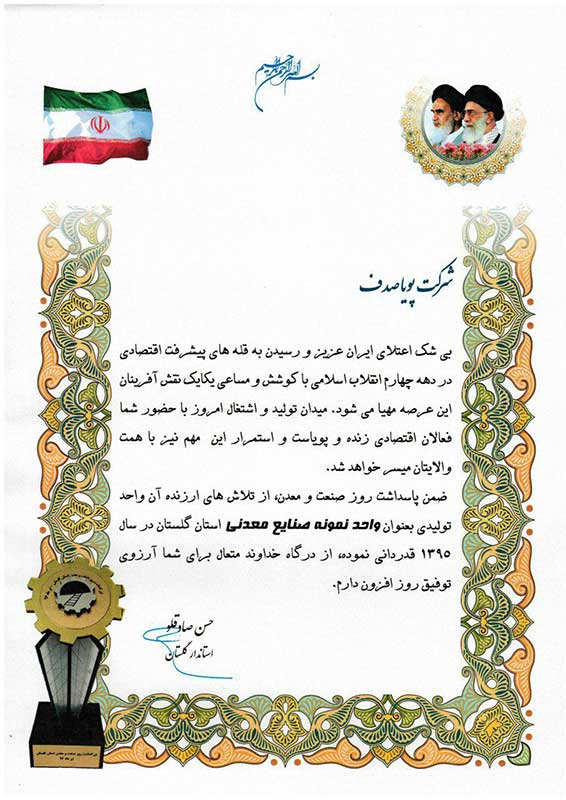 بسم الله الرحمن الرحیم
شرکت پویا صدف
بی شک اعتلای ایران عزیز و رسیدن به قله های پیشرفت اقتصادی
در دهه چهارم انقلاب اسلامی با کوشش و مساعی یکایک نقش آفرینان
این عرصه مهیا می شود. میدان تولید و اشتغال امروز با حضور شما
فعالان اقتصادی زنده و پویاست و استمرار این مهم نیز با همت
والایتان میسر خواهد شد.
ضمن پاسداشت روز صنعت و معدن، از تلاش های ارزنده آن واحد
تولیدی بعنوان واحد نمونه صنایع معدنی استان گلستان در سال
۱۳۹۵ قدردانی نموده، از درگاه خداوند متعال برای شما آرزوی
توفیق روز افزون دارم.
حسن صادقلو
استاندار گلستان